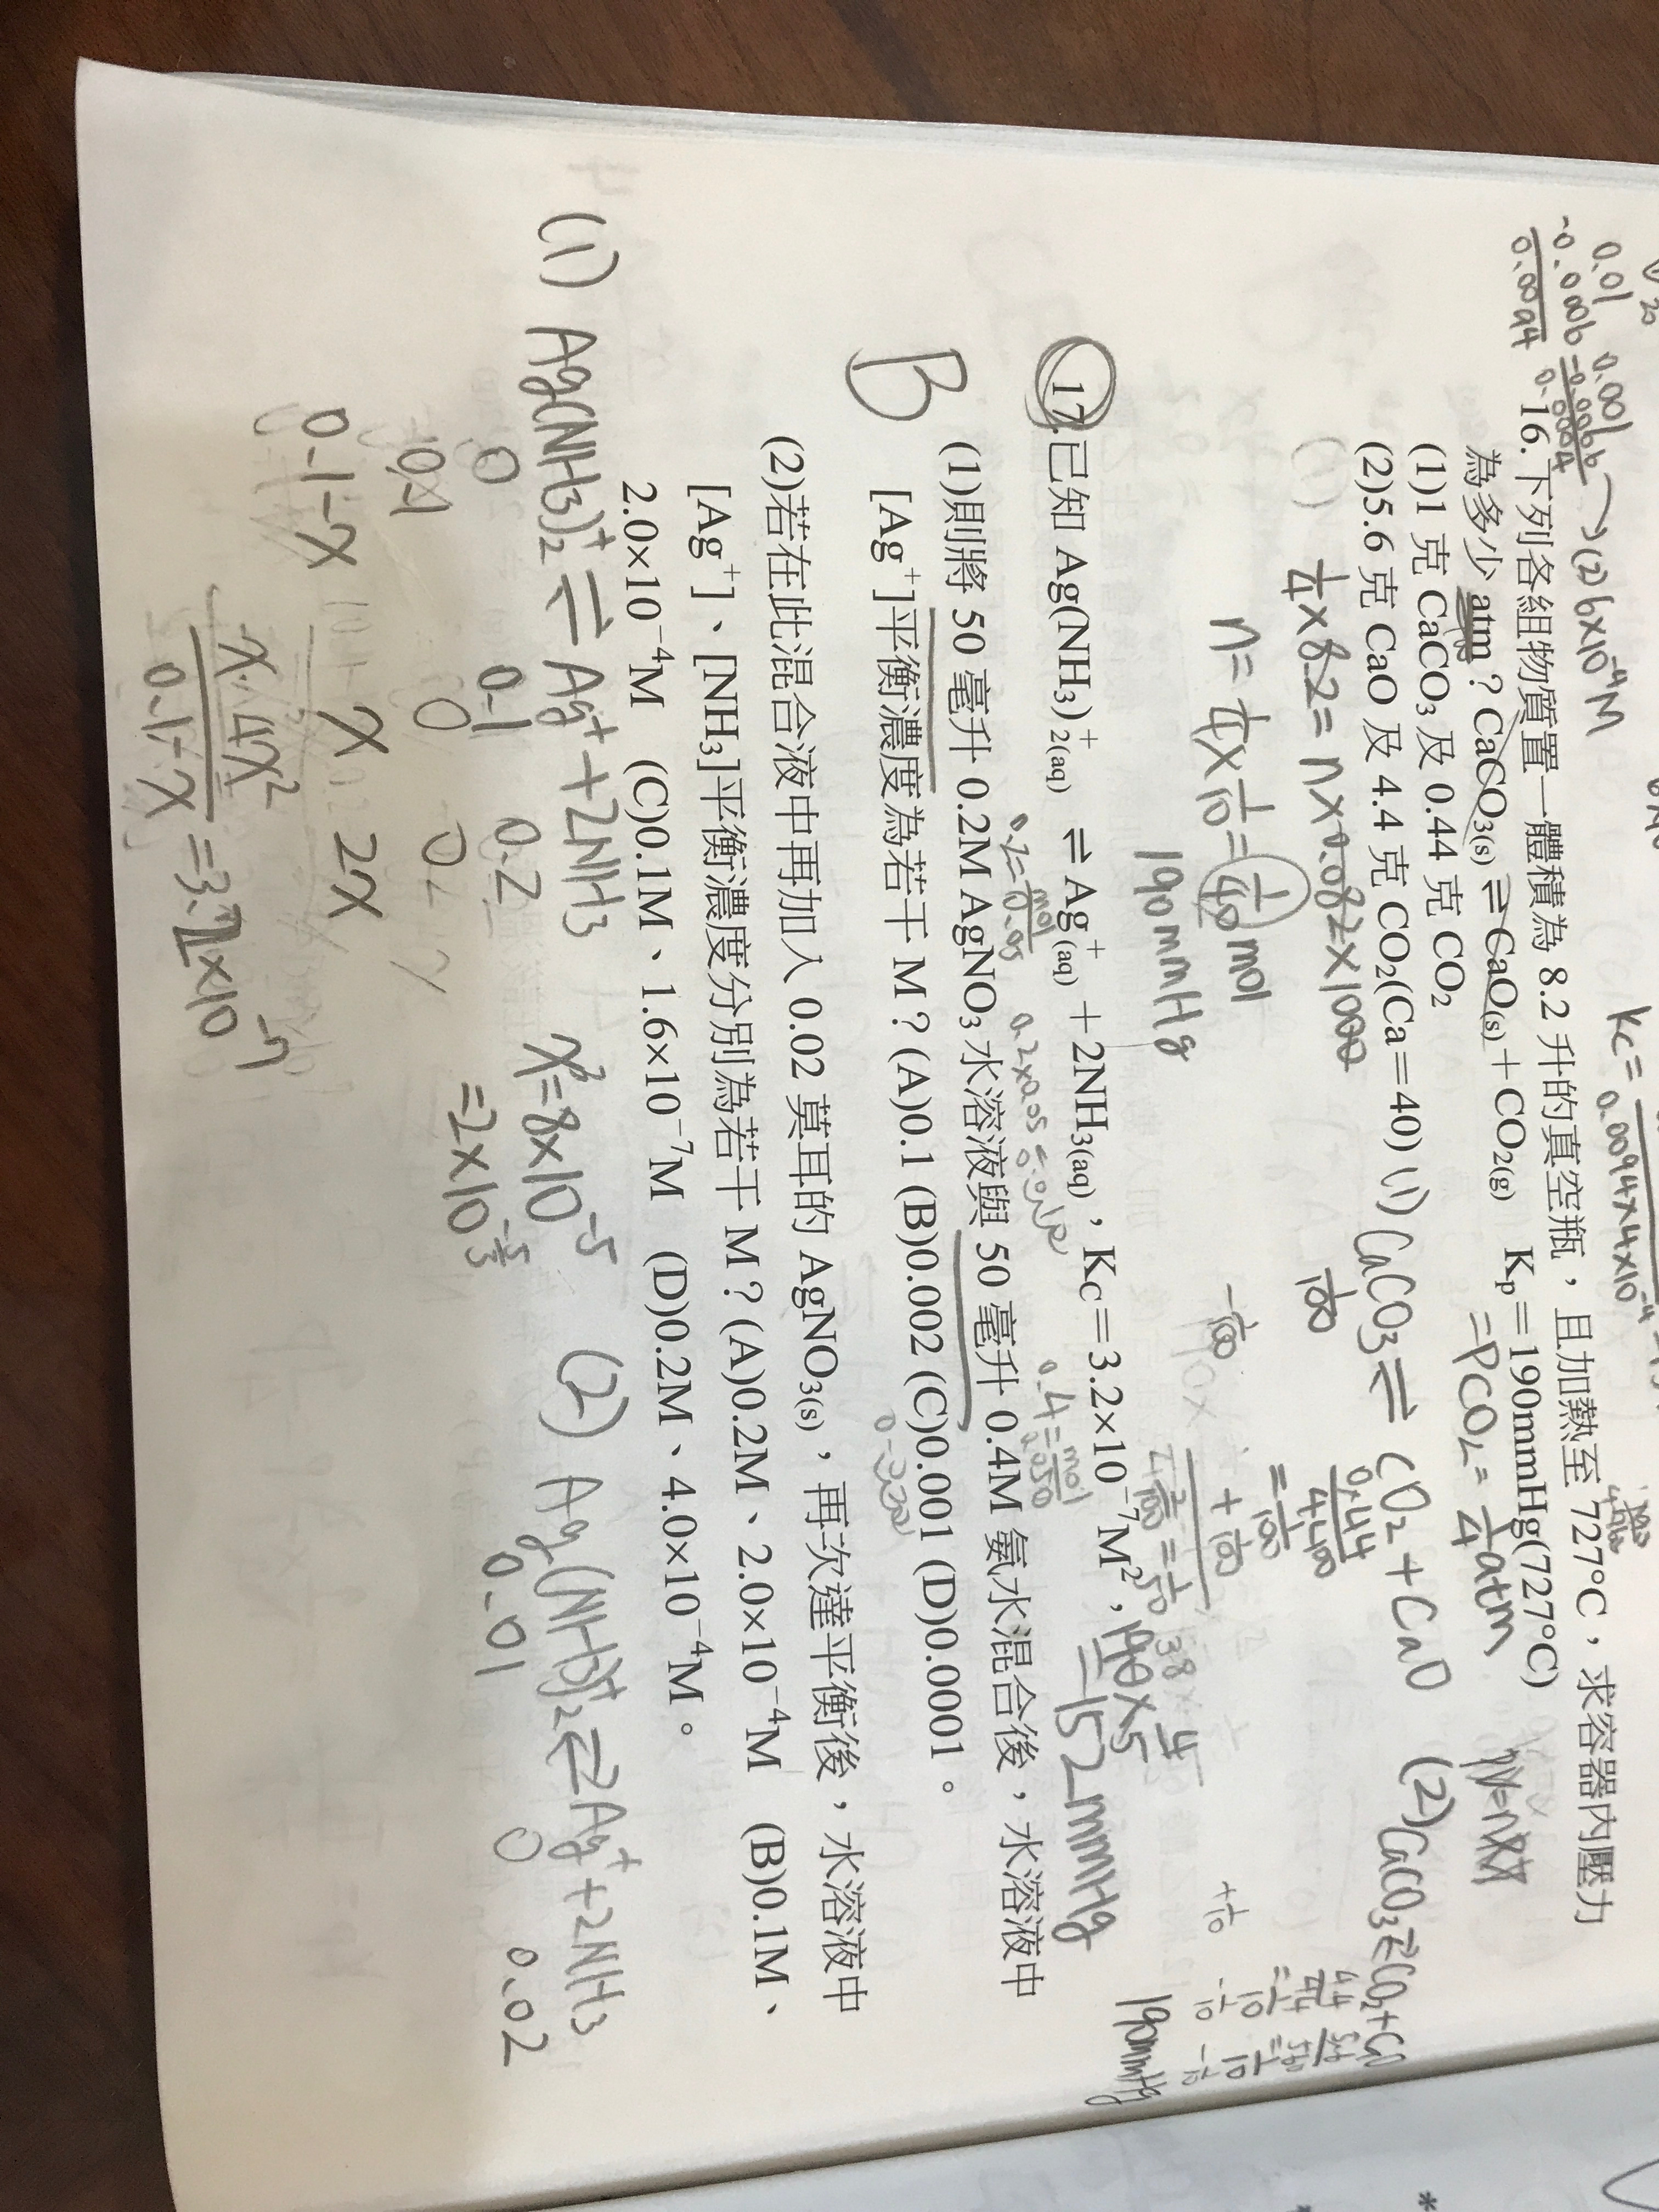 0.01 0.001
-0.0006 -0.0006
0.0094 0.0004 → (2) 6×10⁻⁴M
Kc=
0.0094×4×10⁻⁴
16.下列各組物質置一體積為 8.2 升的真空瓶,且加熱至 727°C,求容器內壓力
為多少 atm?CaCO₃(s)⇌CaO(s)+CO₂(g) Kp=190mmHg(727°C)
=PCO₂=1/4 atm
(1)1 克 CaCO₃ 及 0.44 克 CO₂
(2)5.6 克 CaO 及 4.4 克 CO₂(Ca=40)
(1) CaCO₃⇌ CO₂+CaO
1/100 0.44/44
=1/100
(2) CaCO₃⇌CO₂+CaO
(1) 1/4×8.2=n×0.082×1000
n=1/4×1/10=1/40 mol
190mmHg
190×4/5
=152mmHg
190mmHg
17.已知 Ag(NH₃)₂⁺(aq) ⇌Ag⁺(aq)+2NH₃(aq),Kc=3.2×10⁻⁷M²,
0.2=mol/0.05 0.2×0.05= 0.4=mol/0.050
(1)則將 50 毫升 0.2M AgNO₃ 水溶液與 50 毫升 0.4M 氨水混合後,水溶液中
[Ag⁺]平衡濃度為若干 M?(A)0.1 (B)0.002 (C)0.001 (D)0.0001。
B
(2)若在此混合液中再加入 0.02 莫耳的 AgNO₃(s),再次達平衡後,水溶液中
[Ag⁺]、[NH₃]平衡濃度分別為若干 M?(A)0.2M、2.0×10⁻⁴M (B)0.1M、
2.0×10⁻⁴M (C)0.1M、1.6×10⁻⁷M (D)0.2M、4.0×10⁻⁴M。
(1) Ag(NH₃)₂⁺⇌Ag⁺+2NH₃
0 0.1 0.2
0.1-x x 2x
x·4x²/0.1-x=3.2×10⁻⁷
x³=8×10⁻⁵
=2×10^-5/3
(2) Ag(NH₃)₂⁺⇌Ag⁺+2NH₃
0.01 0 0.02